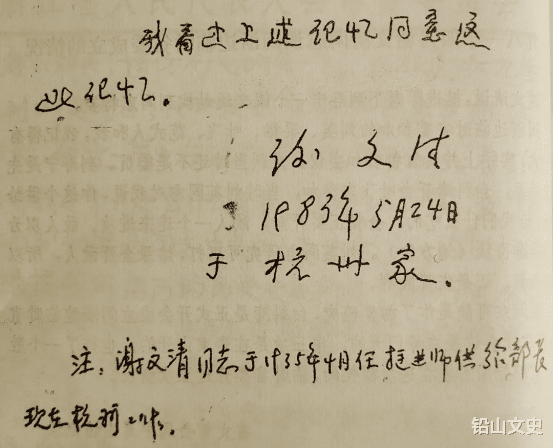 我看过上述记忆同意这
些记忆。
谢文清
1983年5月24日
于杭州家.
注:谢文清同志于1935年4月任挺进师供给部长
现在杭州工作.
铅山文史